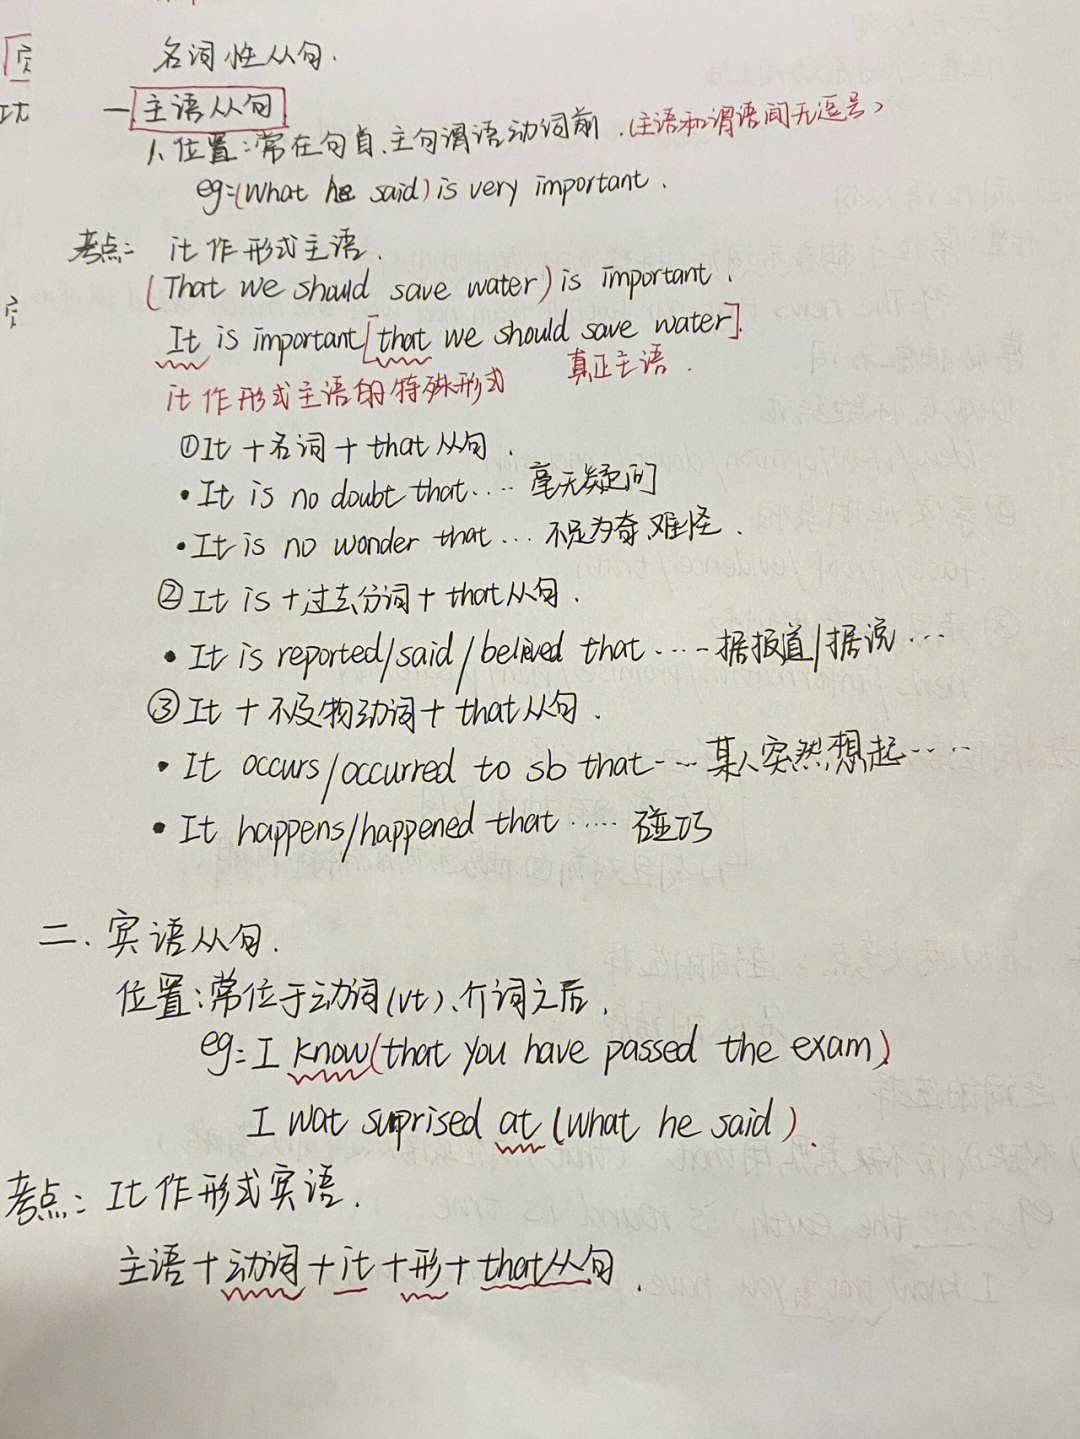 名词性从句.
一 主语从句
1、位置:常在句首、主句谓语动词前.(主语和谓语间无逗号)
eg:(What he said) is very important.
考点: it 作形式主语.
(That we should save water) is important.
It is important [that we should save water].
it 作形式主语的特殊形式 真正主语.
①It + 名词 + that 从句.
• It is no doubt that.... 毫无疑问
• It is no wonder that... 不足为奇、难怪.
② It is + 过去分词 + that 从句.
• It is reported/said/believed that ..... 据报道/据说...
③ It + 不及物动词 + that 从句.
• It occurs/occurred to sb that .... 某人突然想起....
• It happens/happened that ..... 碰巧
二. 宾语从句.
位置:常位于动词(vt)、介词之后.
eg: I know (that you have passed the exam)
I wat surprised at (what he said).
考点: It 作形式宾语.
主语+动词+it+形+that从句.